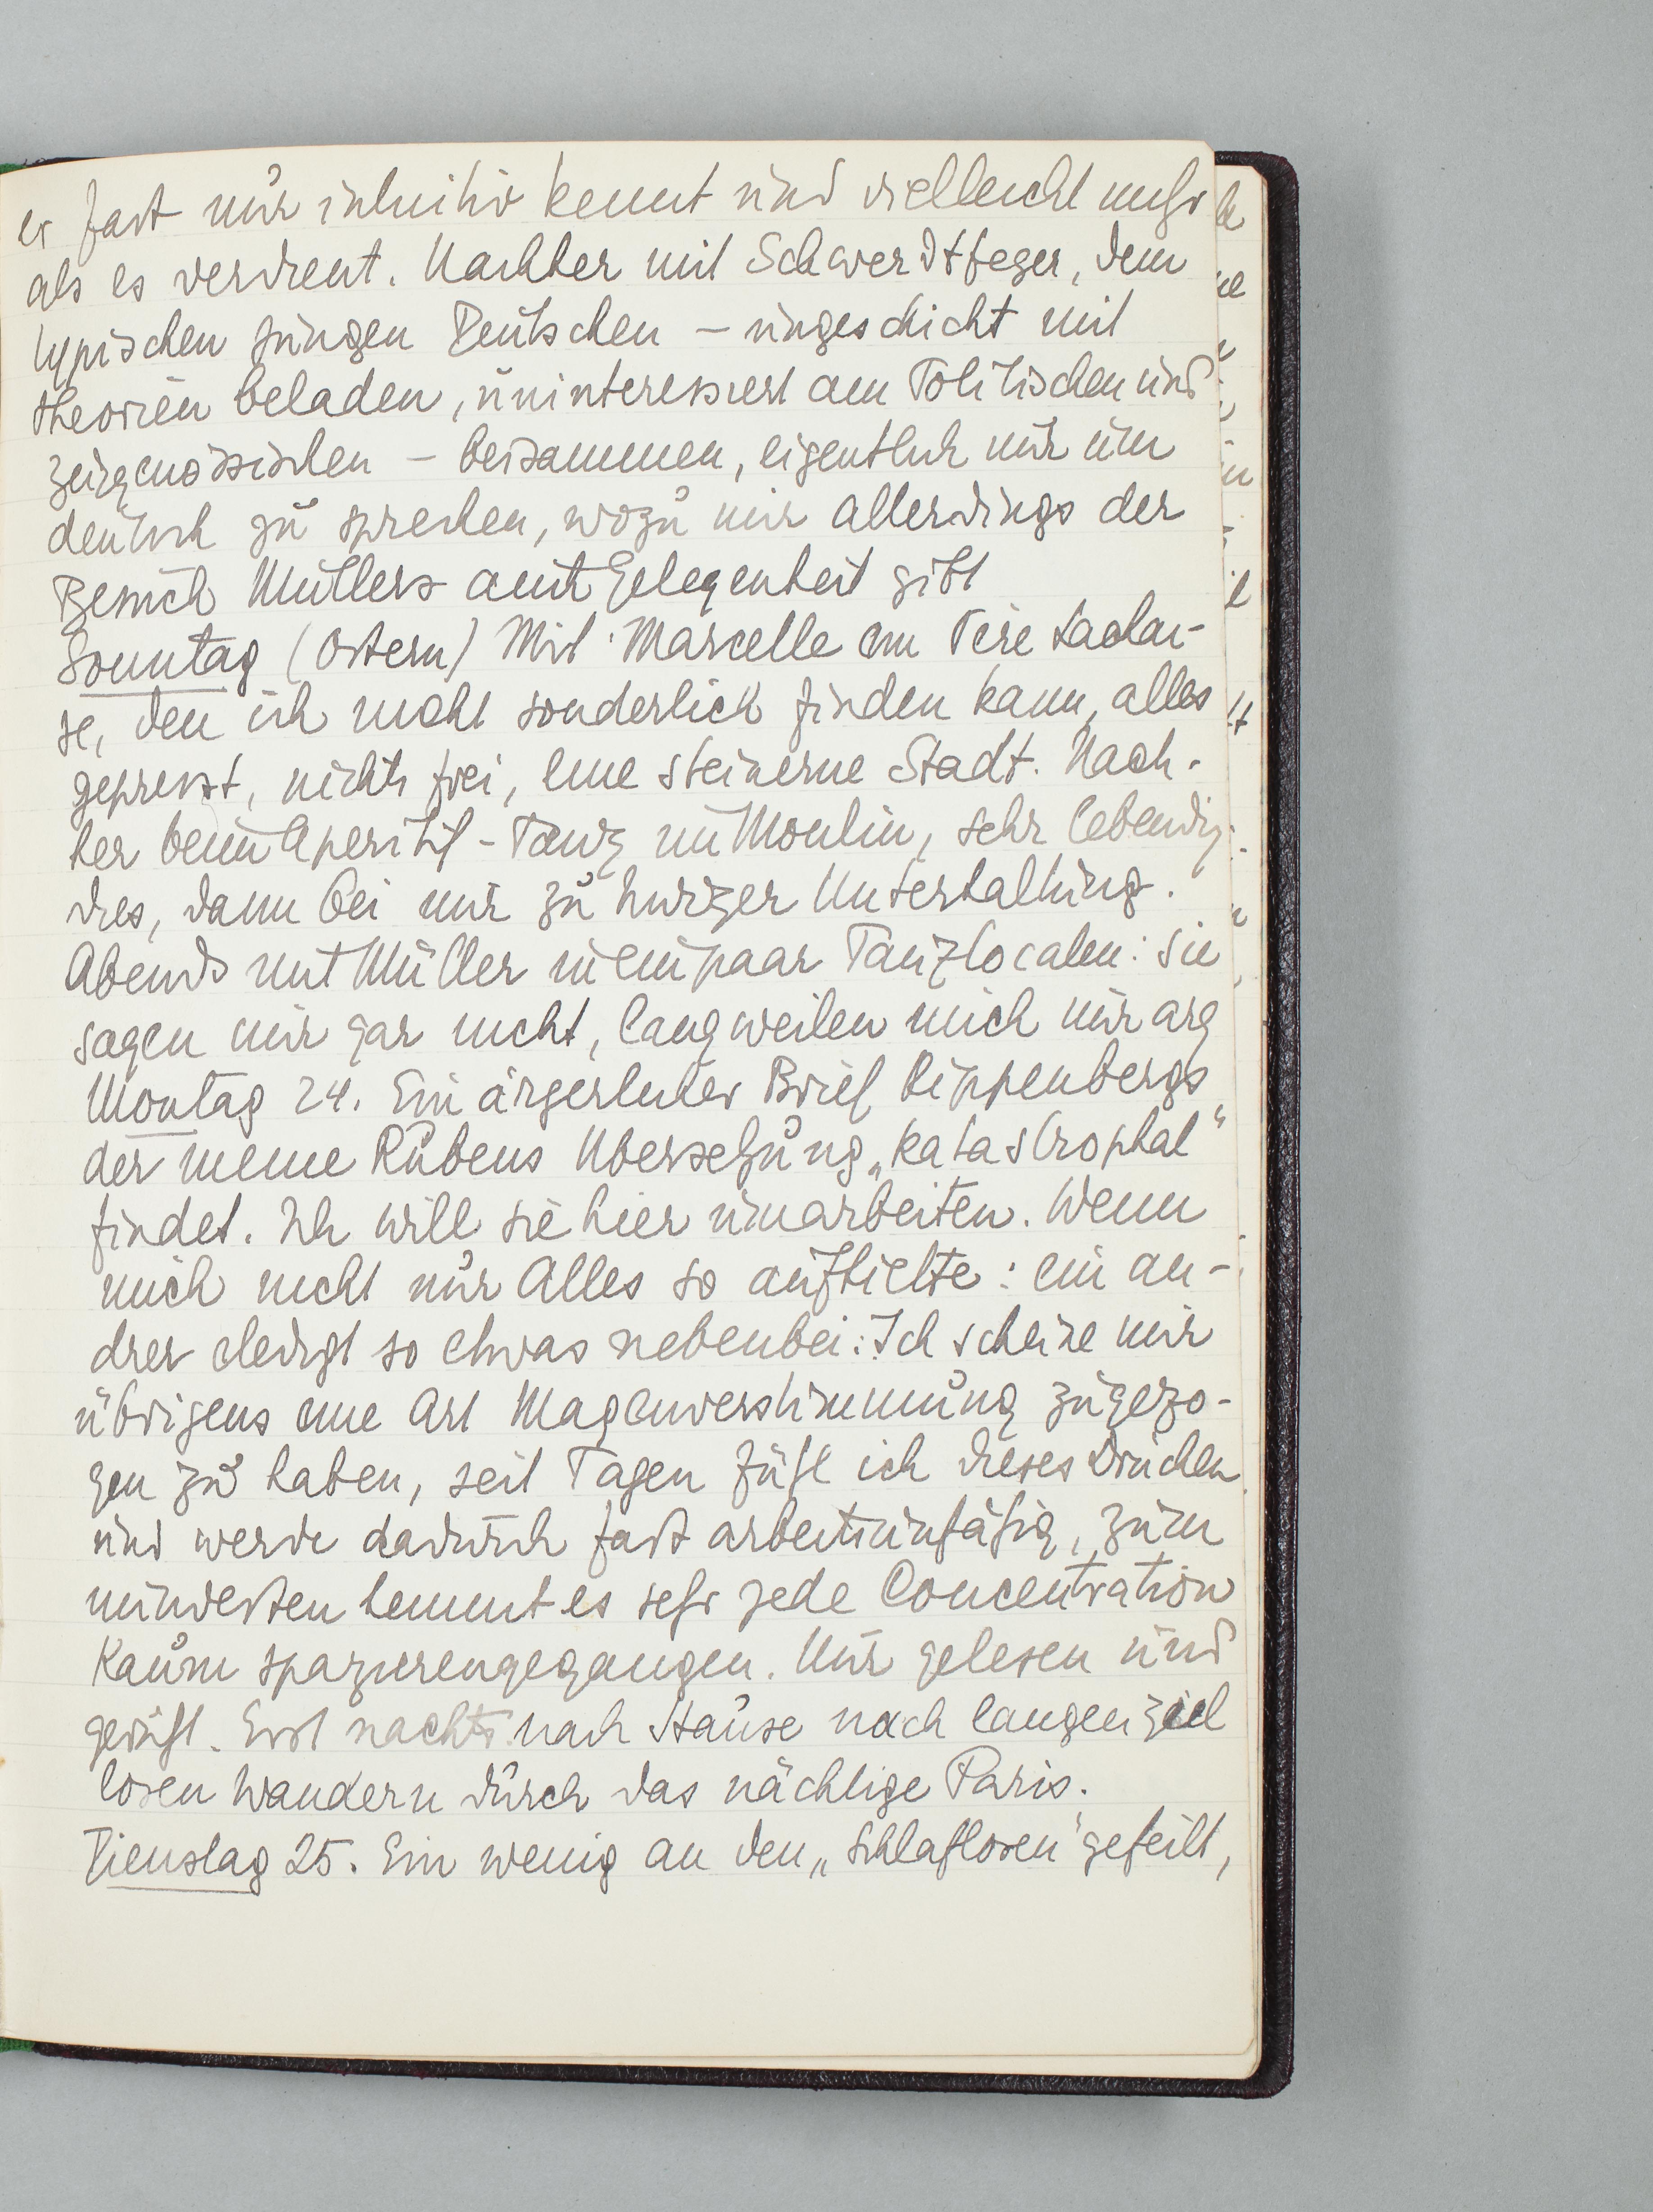 er fast nur intuitiv kennt und vielleicht mehr
als es verdient. Nachher mit Schwerdtfeger, dem
typischen jungen Deutschen – ungeschickt mit
Theorien beladen, uninteressiert am Politischen und
zeitgenössischen – beisammen, eigentlich nur um
deutsch zu sprechen, wozu mir allerdings der
Besuch Müllers auch Gelegenheit gibt
Sonntag (Ostern) Mit Marcelle am Père Lachai-
se, den ich nicht sonderlich finden kann, alles
gepresst, nichts frei, eine steinerne Stadt. Nach-
her beim Aperitif-Tanz im Moulin, sehr lebendig
dies, dann bei mir zu kurzer Unterhaltung.
Abends mit Müller in ein paar Tanzlocalen: sie
sagen mir gar nicht, langweilen mich nur arg
Montag 24. Ein ärgerlicher Brief Kippenbergs
der meine Rubens Übersetzung „katastrophal"
findet. Ich will sie hier umarbeiten. Wenn
mich nicht nur Alles so aufhielte: ein an-
drer erledigt so etwas nebenbei: Ich scheine mir
übrigens eine Art Magenverstimmung zugezo-
gen zu haben, seit Tagen fühl ich dieses Drücken
und werde dadurch fast arbeitsunfähig, zum
mindesten hemmt es sehr jede Concentration
Kaum spazierengegangen. Nur gelesen und
geruht. Erst nachts nach Hause nach langen ziel
losen Wandern durch das nächtige Paris.
Dienstag 25. Ein wenig an den „Schlaflosen" gefeilt,